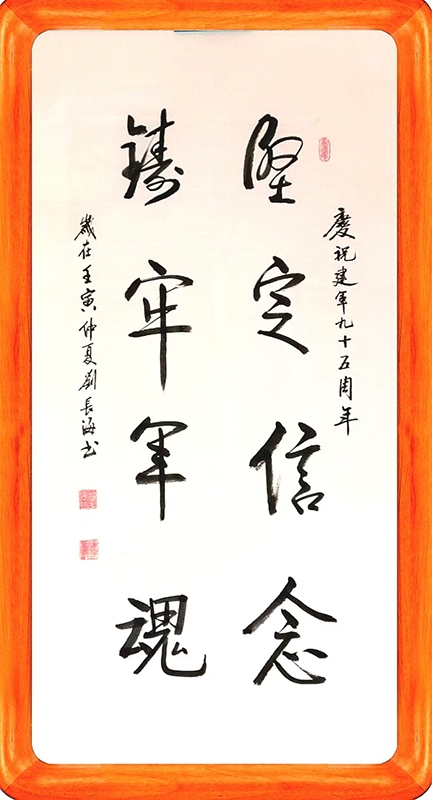 慶祝建軍九十五周年
堅定信念
鑄牢军魂
歲在壬寅仲夏劉長海书